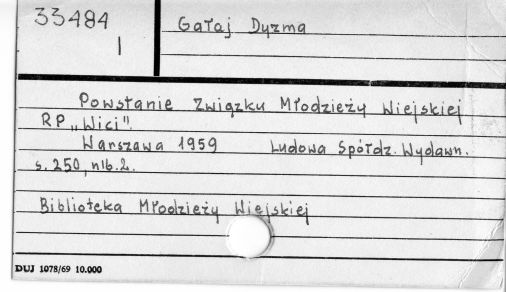 33484
I
Gałaj Dyzma
Powstanie Związku Młodzieży Wiejskiej
RP „Wici".
Warszawa 1959 Ludowa Spółdz. Wydawn.
s. 250, nlb. 2.
Biblioteka Młodzieży Wiejskiej
DUJ 1078/69 10.000